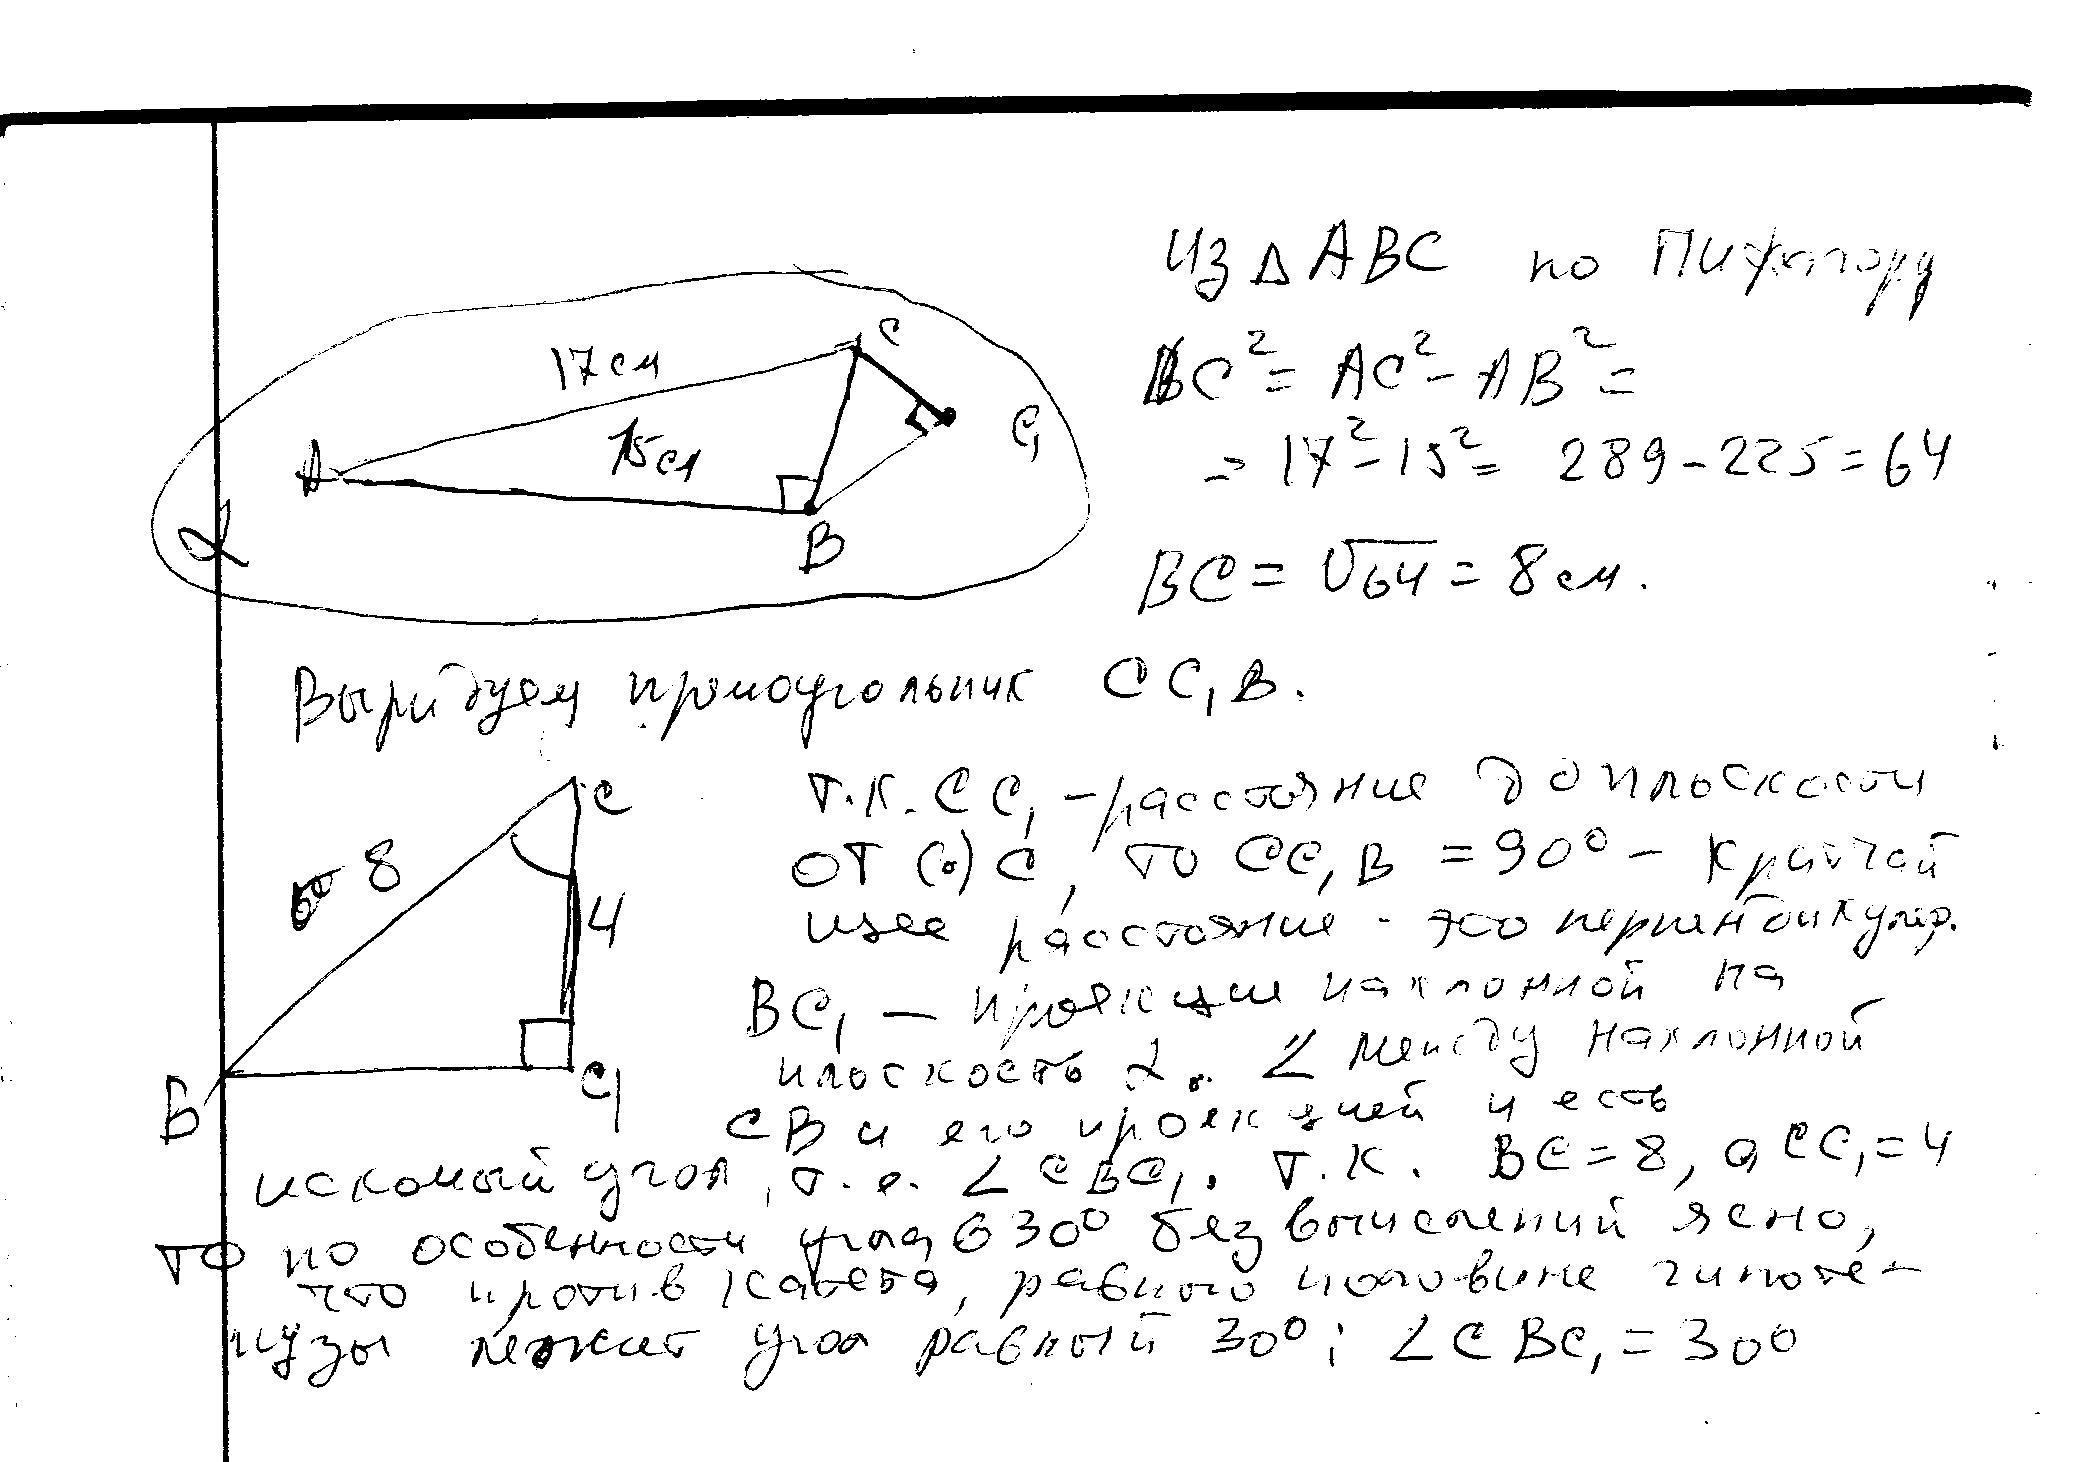 Из Δ ABC по Пифагору
BC² = AC² - AB² =
= 17² - 15² = 289 - 225 = 64
BC = √64 = 8 см.
17 см
15 см
A
B
C
C₁
α
Вырисуем прямоугольник CC₁B.
C
8
4
B
C₁
т.к. CC₁ - расстояние до плоскости
от (•) C, то CC₁B = 90° - кратчай
шее расстояние - это перпендикуляр.
BC₁ - проекция наклонной на
плоскость α. ∠ между наклонной
CB и его проекцией и есть
искомый угол, т.е. ∠CBC₁. Т.К. BC = 8, а CC₁ = 4
то по особенности угла в 30° без вычислений ясно,
что против катета, равного половине гипоте-
нузы лежит угол равный 30°; ∠CBC₁ = 30°